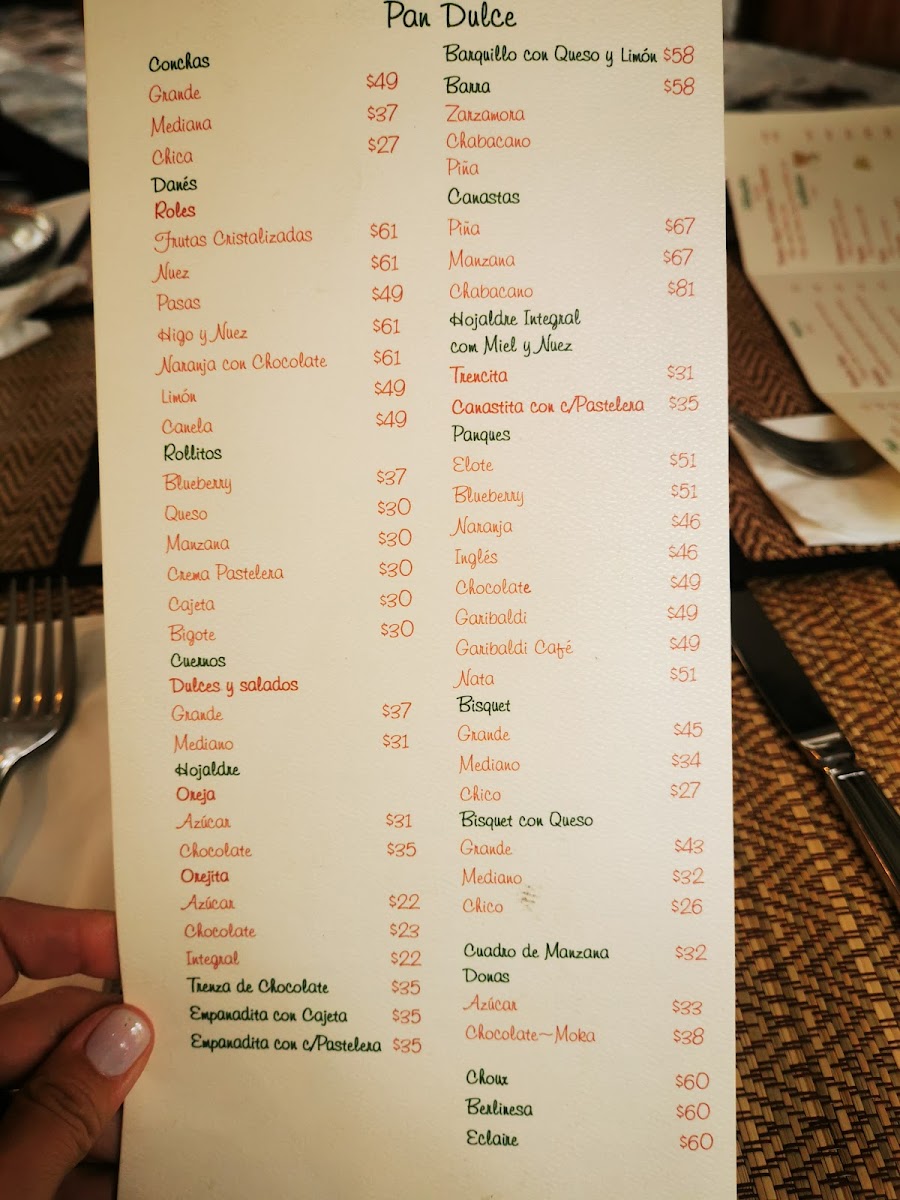 Pan Dulce
Conchas
Grande $49
Mediana $37
Chica $27
Danés
Roles
Frutas Cristalizadas $61
Nuez $61
Pasas $49
Higo y Nuez $61
Naranja con Chocolate $61
Limón $49
Canela $49
Rollitos
Blueberry $37
Queso $30
Manzana $30
Crema Pastelera $30
Cajeta $30
Bigote $30
Cuernos
Dulces y salados
Grande $37
Mediano $31
Hojaldre
Oreja
Azúcar $31
Chocolate $35
Orejita
Azúcar $22
Chocolate $23
Integral $22
Trenza de Chocolate $35
Empanadita con Cajeta $35
Empanadita con c/Pastelera $35
Barquillo con Queso y Limón $58
Barra $58
Zarzamora
Chabacano
Piña
Canastas
Piña $67
Manzana $67
Chabacano $81
Hojaldre Integral
com Miel y Nuez
Trencita $31
Canastita con c/Pastelera $35
Panques
Elote $51
Blueberry $51
Naranja $46
Inglés $46
Chocolate $49
Garibaldi $49
Garibaldi Café $49
Nata $51
Bisquet
Grande $45
Mediano $34
Chico $27
Bisquet con Queso
Grande $43
Mediano $32
Chico $26
Cuadro de Manzana $32
Donas
Azúcar $33
Chocolate~Moka $38
Choux $60
Berlinesa $60
Eclaire $60